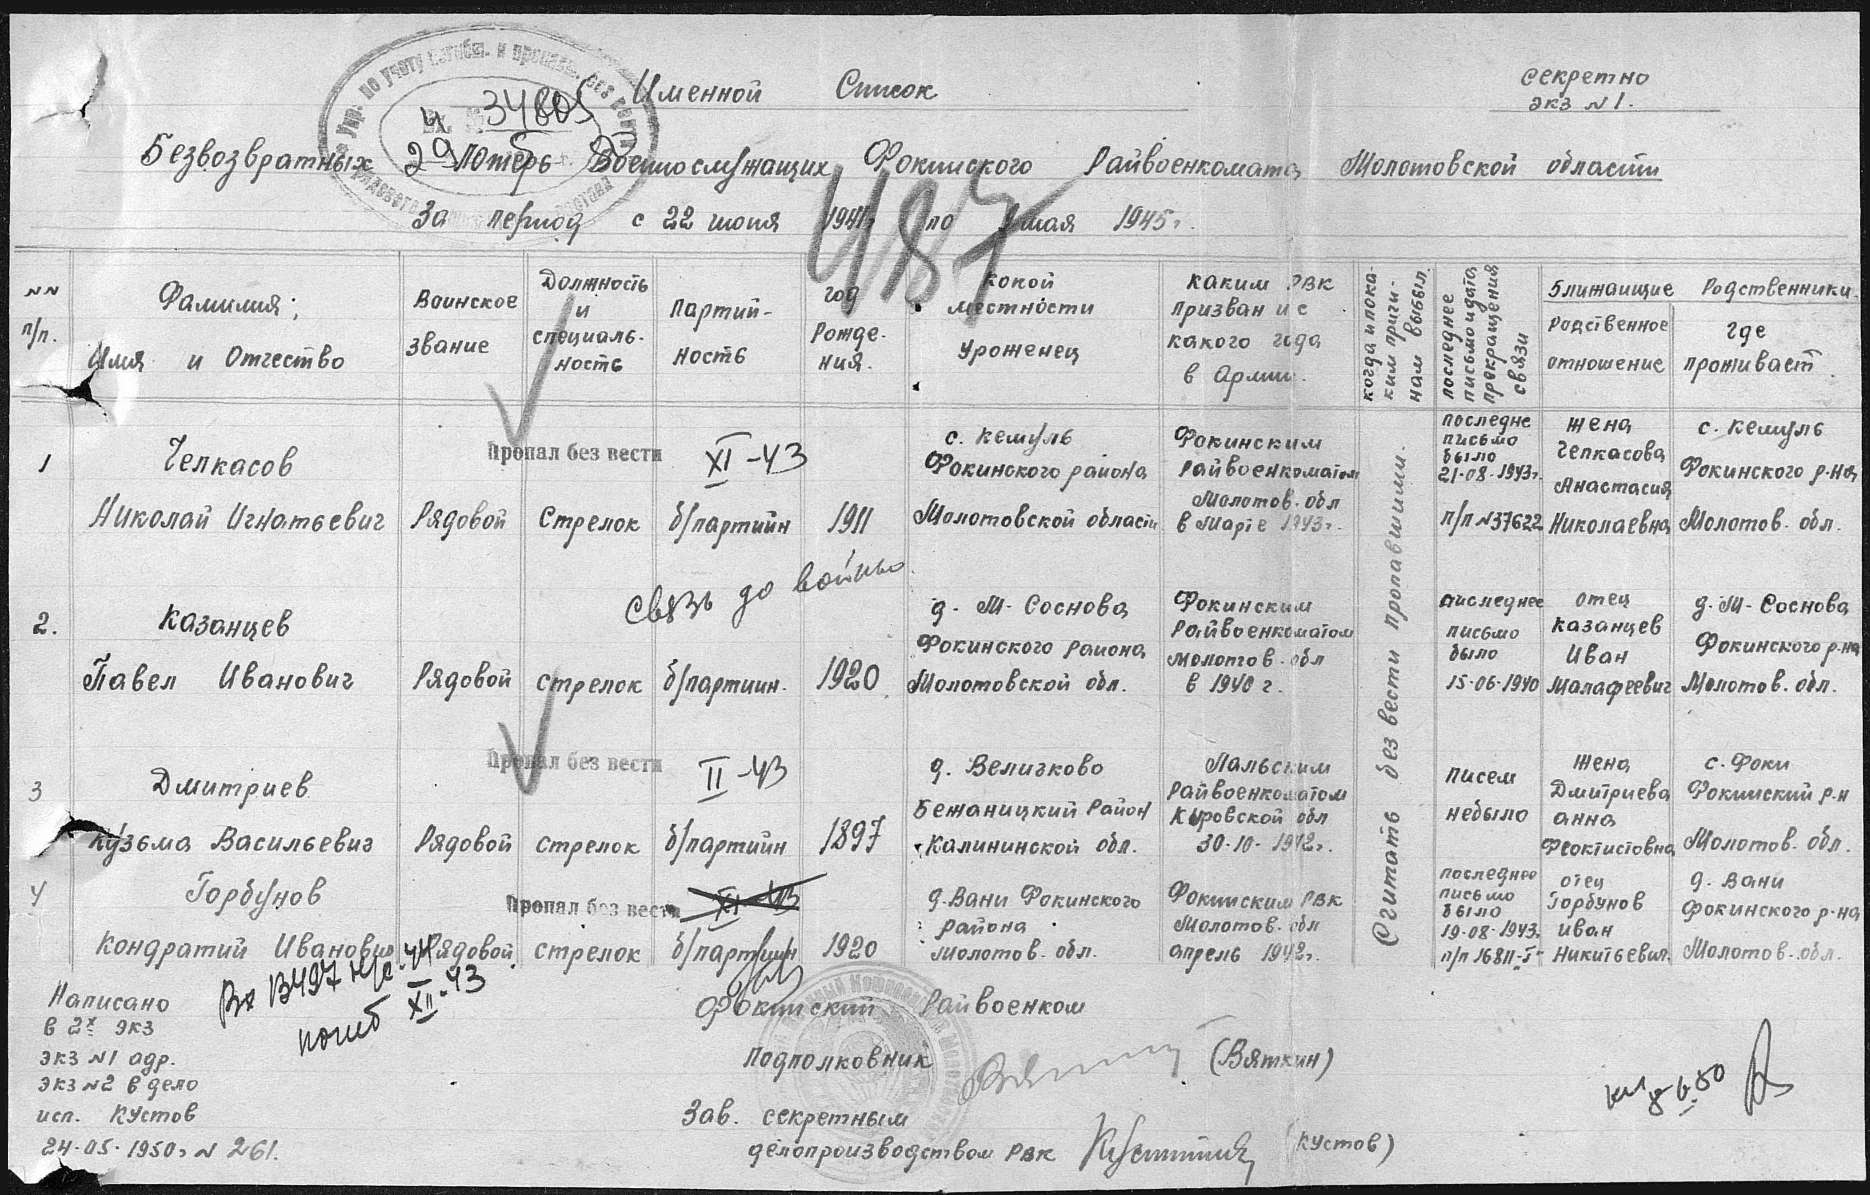 Секретно
экз №1.
Именной Список
Безвозвратных Потерь Военнослужащих Фокинского Райвоенкомата Молотовской области
За период с 22 июня 1941г по 9 мая 1945г.
34805
487
№№ п/п.
Фамилия; Имя и Отчество
Воинское звание
Должность и специальность
Партийность
год рождения.
какой местности уроженец
каким РВК призван и с какого года в Армии.
когда и по каким причинам выбыл.
последнее письмо и дата прекращения связи
Ближайшие Родственники
Родственное отношение
где проживает
1
Челкасов
Николай Игнатьевич
Рядовой
Стрелок
Пропал без вести XI-43
б/партийн
1911
с. Кемуль
Фокинского района
Молотовской области
Фокинским
Райвоенкоматом
Молотов. обл
в Марте 1943г.
Считать без вести пропавшими.
последне
письмо
было
21-08-1943г.
п/п №37622
жена
Челкасова
Анастасия
Николаевна
с. Кемуль
Фокинского р-на
Молотов. обл.
2.
Казанцев
Павел Иванович
Рядовой
стрелок
связь до войны
б/партиин.
1920
д. М-Соснова
Фокинского района
Молотовской обл.
Фокинским
Райвоенкоматом
Молотов. обл
в 1940 г.
последнее
письмо
было
15-06-1940
отец
Казанцев
Иван
Малафеевич
д. М-Соснова
Фокинского р-на
Молотов. обл.
3
Дмитриев
Кузьма Васильевич
Рядовой
стрелок
Пропал без вести II-43
б/партийн
1897
д. Величково
Бежаницкий район
Калининской обл.
Пальским
Райвоенкоматом
Кировской обл
30-10-1942г.
писем
небыло
жена
Дмитриева
анна
Феоктистовна
с. Фоки
Фокинский р-н
Молотов. обл.
4
Горбунов
Кондратий Иванович
Рядовой
стрелок
Пропал без вести XI-43
б/партиин
1920
д. Вани Фокинского
района
Молотов. обл.
Фокинским РВК
Молотов. обл
апрель 1942г.
последнее
письмо
было
19-08-1943г.
п/п 16811-Г
отец
Горбунов
иван
Никитьевич
д. Вани
Фокинского р-на
Молотов. обл.
погиб XII-43
Написано
в 2х экз
экз №1 адр.
экз №2 в дело
исп. Кустов
24-05-1950г № 261.
Фокинский Райвоенком
Подполковник (Вяткин)
Зав. секретным
делопроизводством РВК (Кустов)